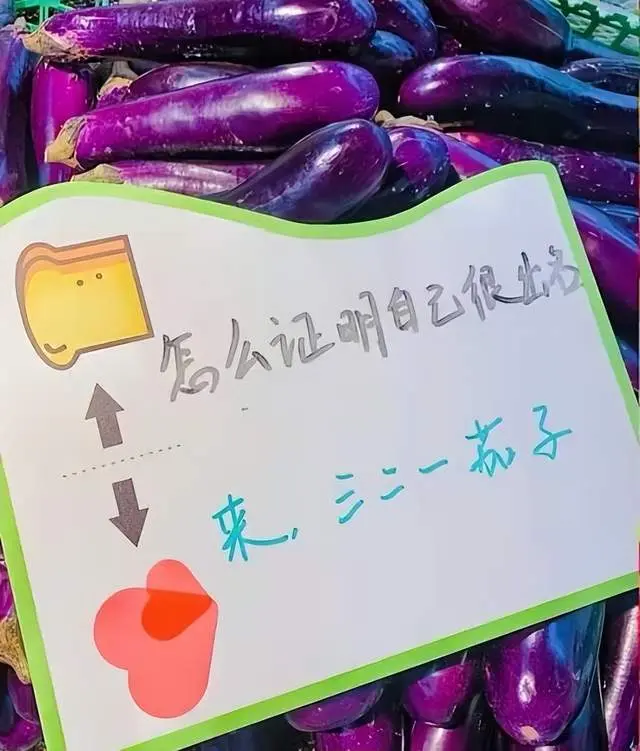 怎么证明自己很出名
来，三二一茄子